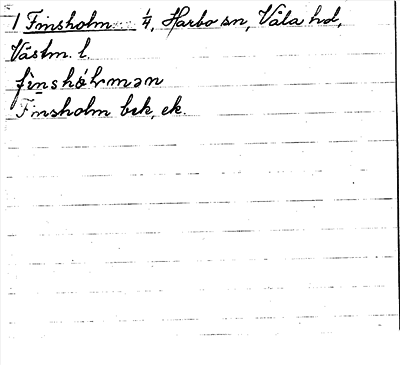 1 Finsholm ¼, Harbo sn, Våla hd,
Västm. l.
Finsholm bek, ek.